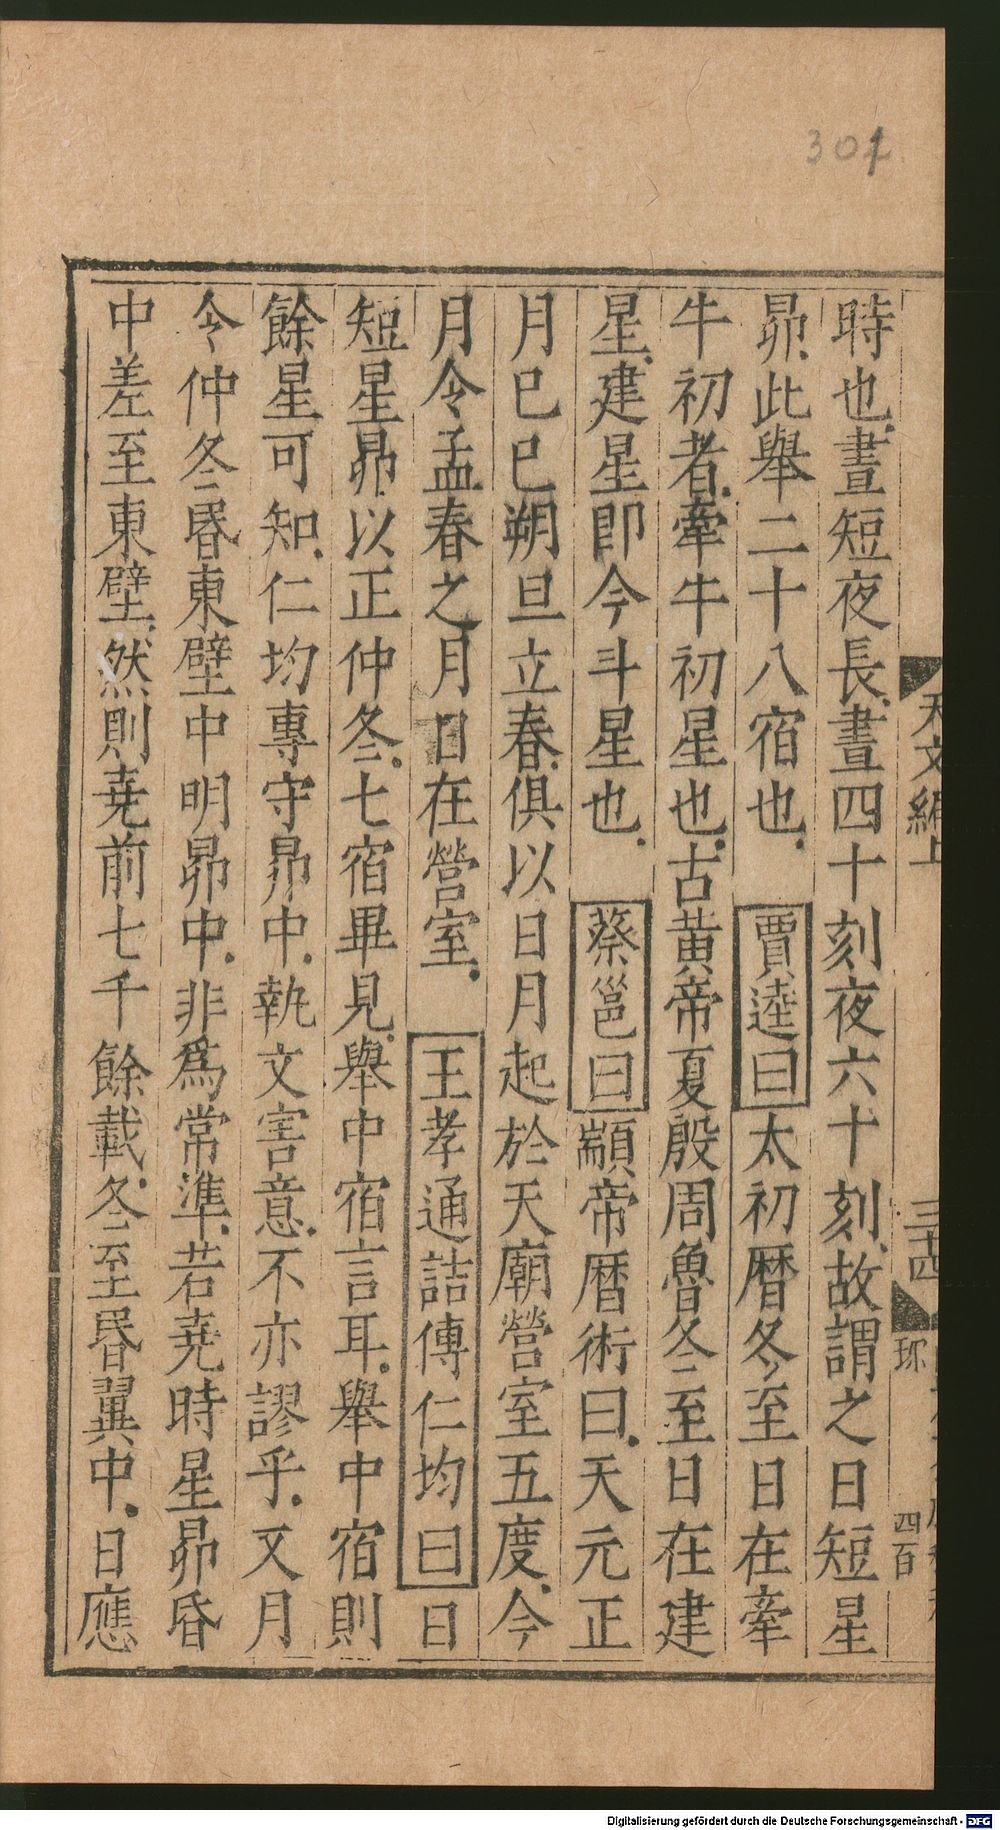 301
天文編上
三十四
四百
時也晝短夜長晝四十刻夜六十刻故謂之日短星
昴此舉二十八宿也　賈逵曰太初曆冬至日在牽
牛初者牽牛初星也古黃帝夏殷周魯冬至日在建
星建星即今斗星也　蔡邕曰顓帝曆術曰天元正
月己巳朔旦立春俱以日月起於天廟營室五度今
月令孟春之月日在營室　王孝通詰傅仁均曰日
短星昴以正仲冬七宿畢見舉中宿言耳舉中宿則
餘星可知仁均專守昴中執文害意不亦謬乎又月
令仲冬昏東壁中明昴中非爲常準若堯時星昴昏
中差至東壁然則堯前七千餘載冬至昏翼中日應
Digitalisierung gefördert durch die Deutsche Forschungsgemeinschaft - DFG